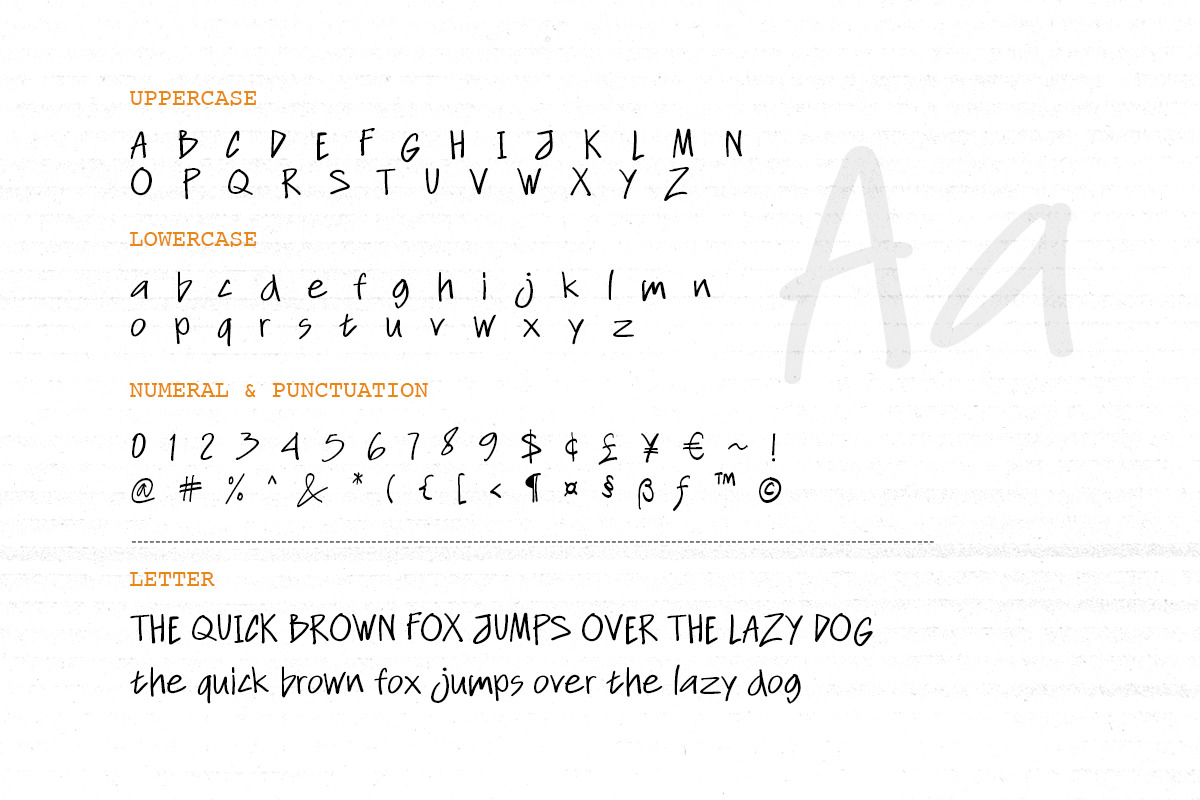 UPPERCASE
A B C D E F G H I J K L M N
O P Q R S T U V W X Y Z
Aa
LOWERCASE
a b c d e f g h i j k l m n
o p q r s t u v w x y z
NUMERAL & PUNCTUATION
0 1 2 3 4 5 6 7 8 9 $ ¢ £ ¥ € ~ !
@ # % ^ & * ( { [ < ¶ ¤ § ß ƒ ™ ©
LETTER
THE QUICK BROWN FOX JUMPS OVER THE LAZY DOG
the quick brown fox jumps over the lazy dog